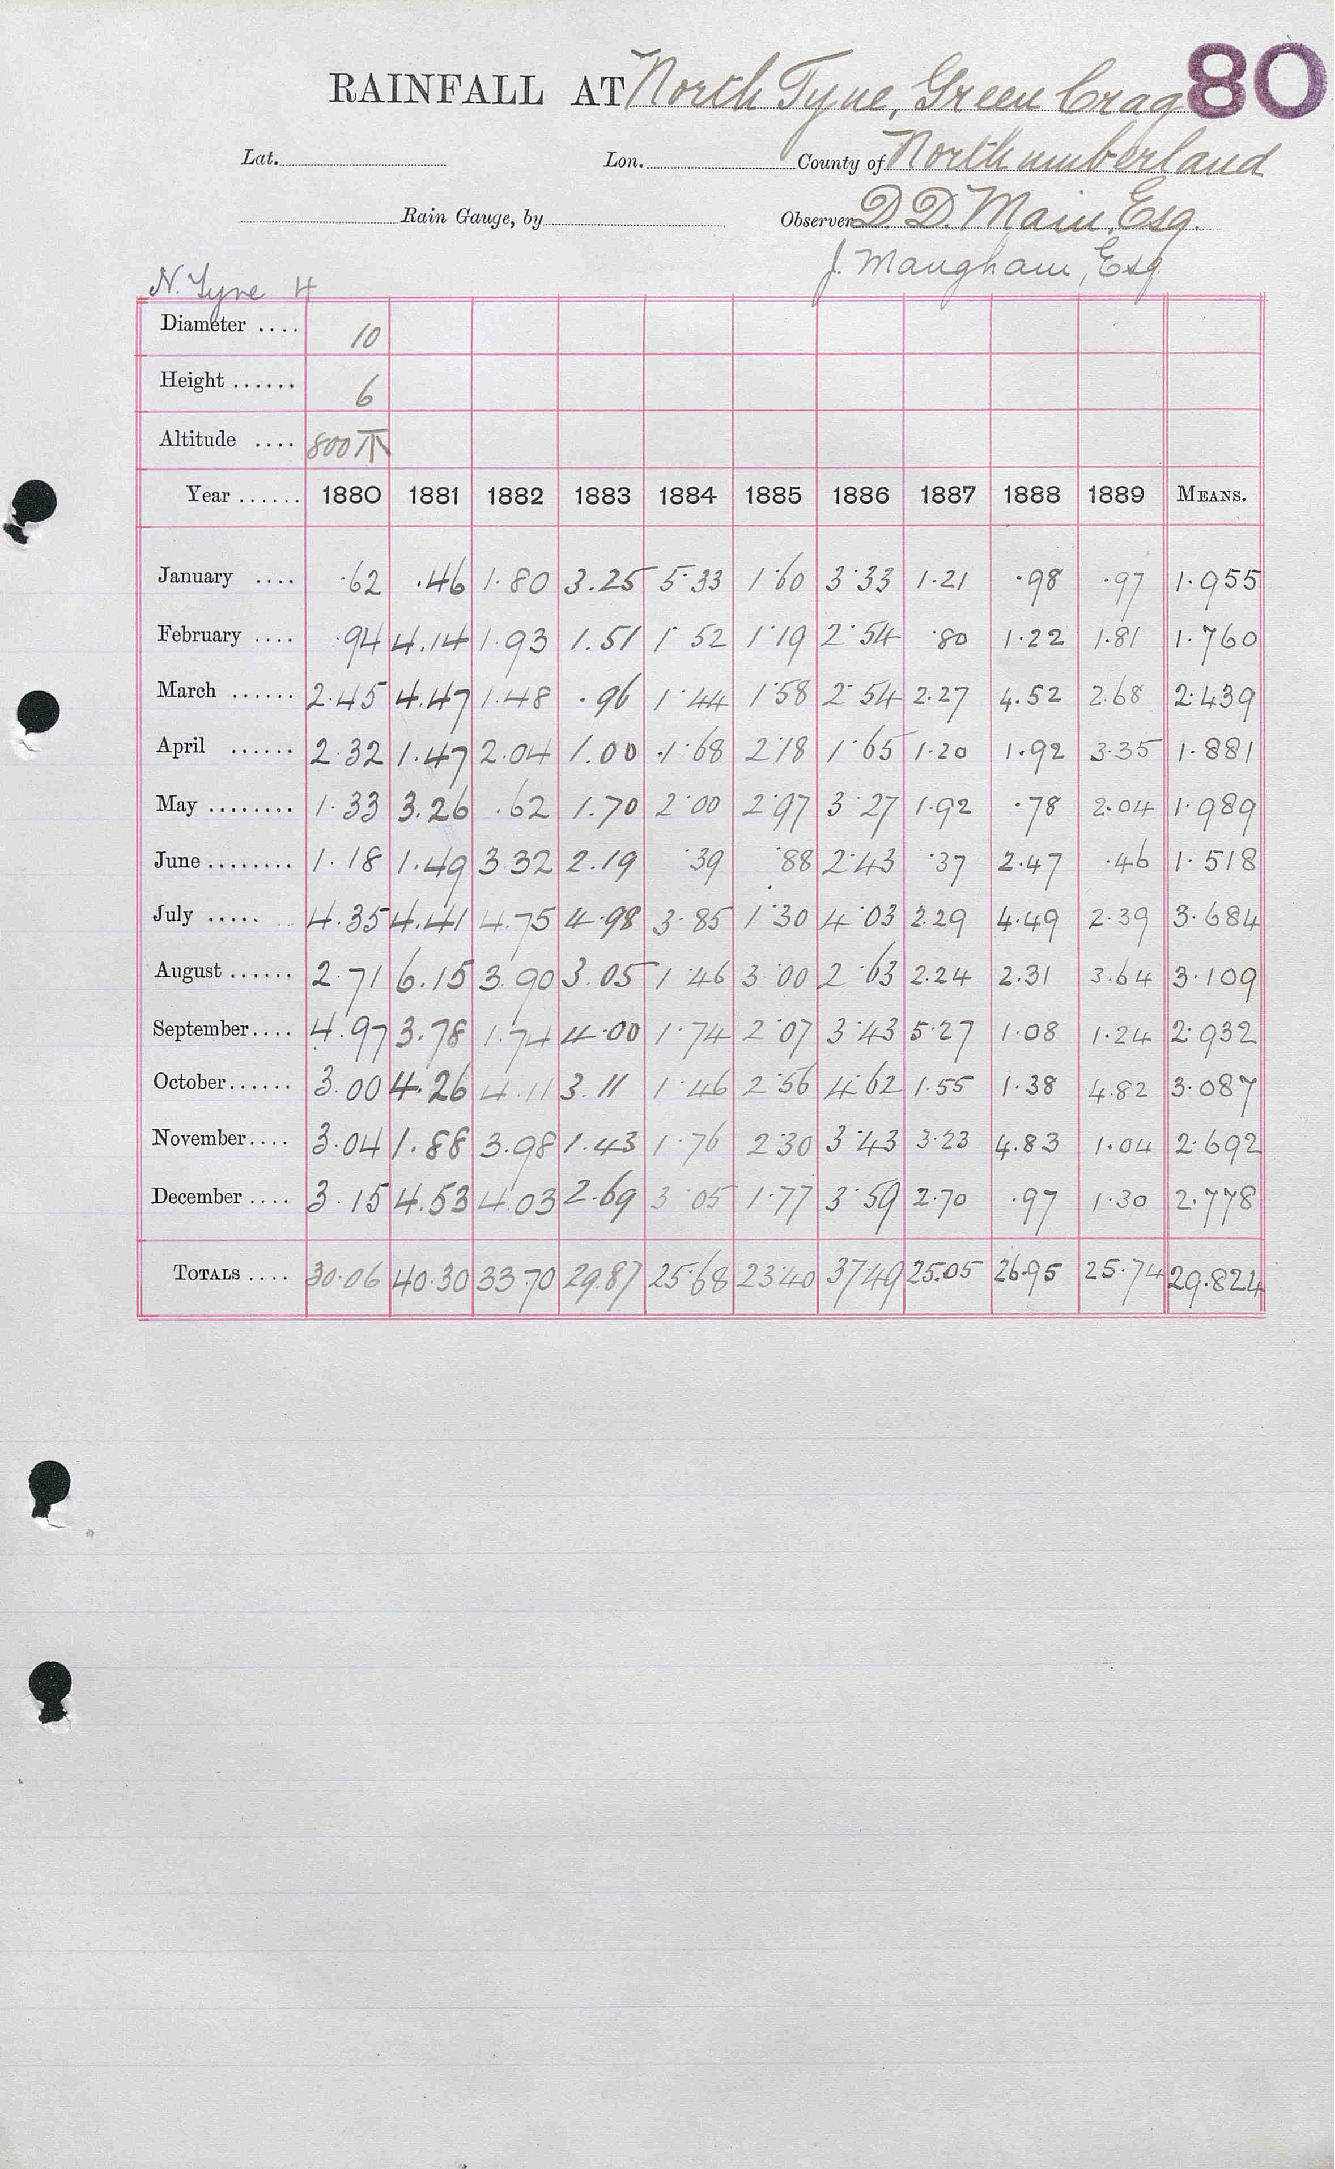 RAINFALL AT North Tyne, Green Crag 80
Lat. Lon. County of Northumberland
Rain Gauge, by Observer D. D. Main, Esq.
J. Maugham, Esq
N. Tyne 4
Diameter .... 10
Height ...... 6
Altitude .... 800
Year ...... 1880 1881 1882 1883 1884 1885 1886 1887 1888 1889 MEANS.
January .... .62 .46 1.80 3.25 5.33 1.60 3.33 1.21 .98 .97 1.955
February .... .94 4.14 1.93 1.51 1.52 1.19 2.54 .80 1.22 1.81 1.760
March ...... 2.45 4.47 1.48 .96 1.44 1.58 2.54 2.27 4.52 2.68 2.439
April ...... 2.32 1.47 2.04 1.00 1.68 2.18 1.65 1.20 1.92 3.35 1.881
May ........ 1.33 3.26 .62 1.70 2.00 2.97 3.27 1.92 .78 2.04 1.989
June ........ 1.18 1.49 3.32 2.19 .39 .88 2.43 .37 2.47 .46 1.518
July ..... 4.35 4.41 4.75 4.98 3.85 1.30 4.03 2.29 4.49 2.39 3.684
August ...... 2.71 6.15 3.90 3.05 1.46 3.00 2.63 2.24 2.31 3.64 3.109
September .... 4.97 3.78 1.74 4.00 1.74 2.07 3.43 5.27 1.08 1.24 2.932
October ...... 3.00 4.26 4.11 3.11 1.46 2.56 4.62 1.55 1.38 4.82 3.087
November .... 3.04 1.88 3.98 1.43 1.76 2.30 3.43 3.23 4.83 1.04 2.692
December .... 3.15 4.53 4.03 2.69 3.05 1.77 3.59 2.70 .97 1.30 2.778
TOTALS .... 30.06 40.30 33.70 29.87 25.68 23.40 37.49 25.05 26.95 25.74 29.824